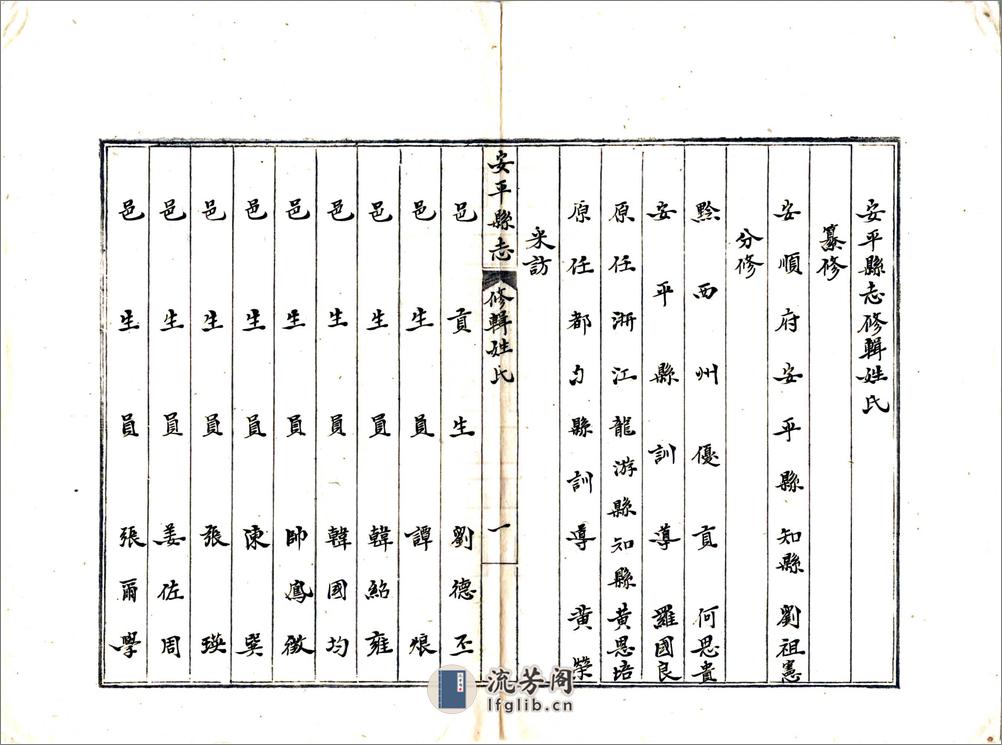 安平縣志修輯姓氏
纂修
安順府安平縣知縣劉祖憲
分修
黔西州優貢何思貴
安平縣訓導羅國良
原任浙江龍游縣知縣黃思培
原任都勻縣訓導黃榮
采訪
安平縣志 修輯姓氏 一
邑貢生劉德丕
邑生員譚烺
邑生員韓紹雍
邑生員韓國均
邑生員帥鳳徵
邑生員陳巽
邑生員張瑛
邑生員姜佐周
邑生員張爾學
流芳阁
lfglib.cn